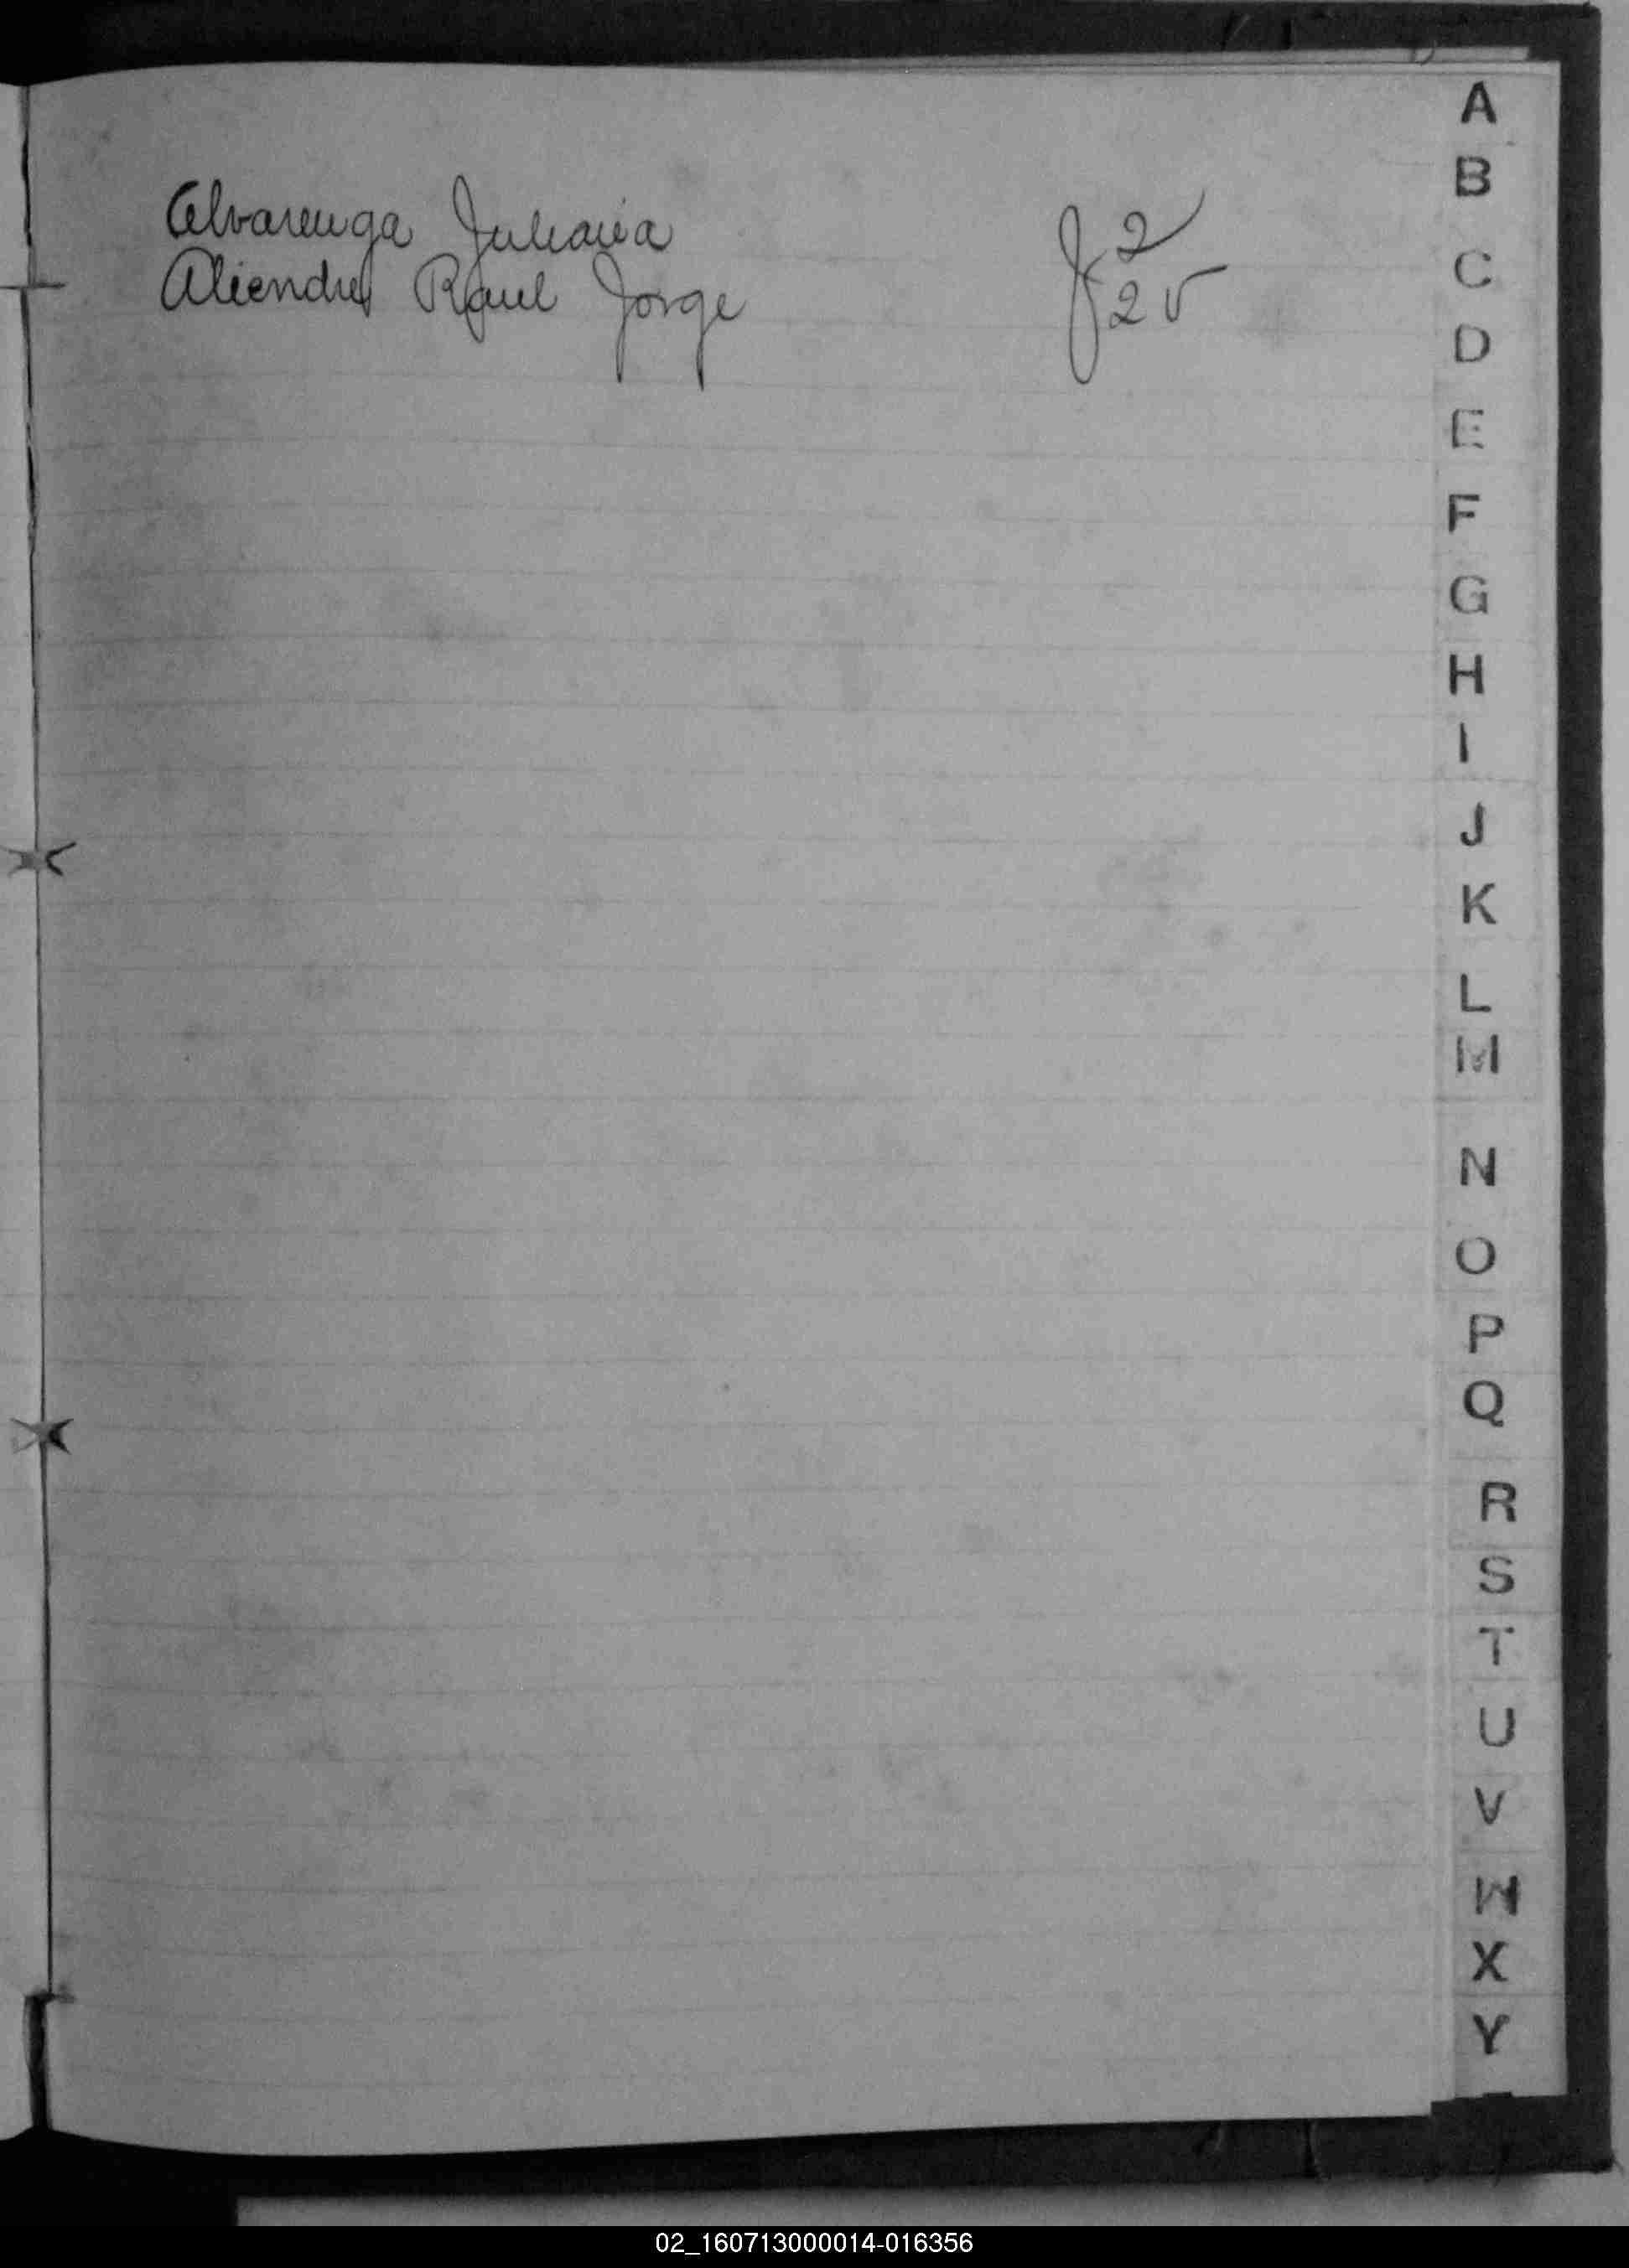 Alvarenga Juliana f 2
Aliendre Raul Jorge f 2 v
A
B
C
D
E
F
G
H
I
J
K
L
M
N
O
P
Q
R
S
T
U
V
W
X
Y
02_160713000014-016356